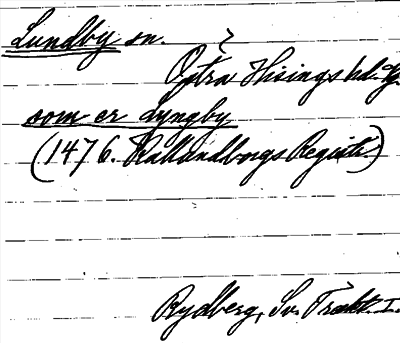 Lundby sn.
Östra Hisings hd. Vg.
som er Lyngby
(1476. Kallundborgs Registr.)
Rydberg, Sv. Trakt. I.